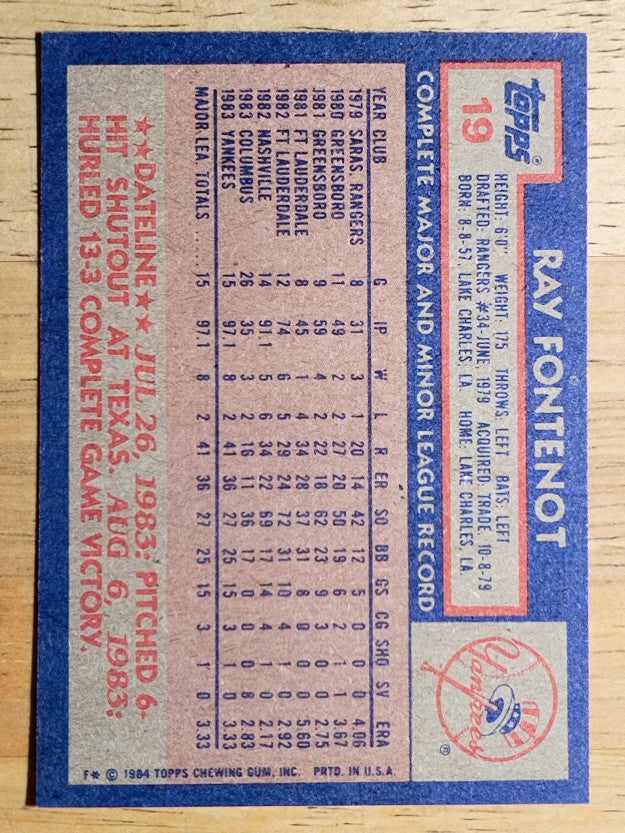 topps
19
RAY FONTENOT
HEIGHT: 6'0" WEIGHT: 175 THROWS: LEFT BATS: LEFT
DRAFTED: RANGERS #34-JUNE, 1979 ACQUIRED: TRADE, 10-8-79
BORN: 8-8-57, LAKE CHARLES, LA HOME: LAKE CHARLES, LA
Yankees
COMPLETE MAJOR AND MINOR LEAGUE RECORD
YEAR CLUB G IP W L R ER SO BB GS CG SHO SV ERA
1979 SARAS. RANGERS 8 31 3 1 20 14 42 12 5 0 0 0 4.06
1980 GREENSBORO 11 49 2 2 27 20 50 19 6 2 1 1 3.67
1981 GREENSBORO 9 59 4 2 22 18 62 23 9 3 0 0 2.75
1981 FT. LAUDERDALE 8 45 1 4 34 28 37 31 8 0 0 0 5.60
1982 FT. LAUDERDALE 12 74 6 5 29 24 72 31 10 4 1 0 2.92
1982 NASHVILLE 14 97.1 5 6 34 22 69 17 14 4 1 0 2.17
1983 COLUMBUS 26 35 3 2 16 11 36 17 0 0 0 8 2.83
1983 YANKEES 15 97.1 8 2 41 36 27 25 15 3 1 0 3.33
MAJOR LEA. TOTALS..... 15 97.1 8 2 41 36 27 25 15 3 1 0 3.33
★★DATELINE★★ JUL 26, 1983: PITCHED 6-
HIT SHUTOUT AT TEXAS. AUG 6, 1983:
HURLED 13-3 COMPLETE GAME VICTORY.
F* © 1984 TOPPS CHEWING GUM, INC. PRTD. IN U.S.A.